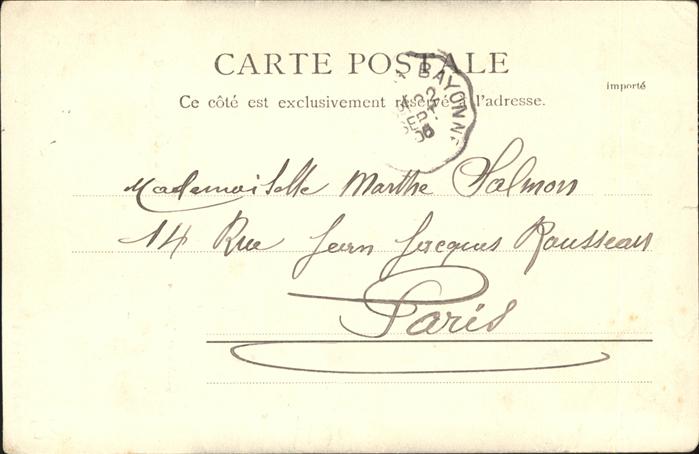 CARTE POSTALE
importé
Ce côté est exclusivement réservé à l'adresse.
BAYONNE
22
SEPT.
Mademoiselle Marthe Salmon
14 Rue Jean Jacques Rousseau
Paris